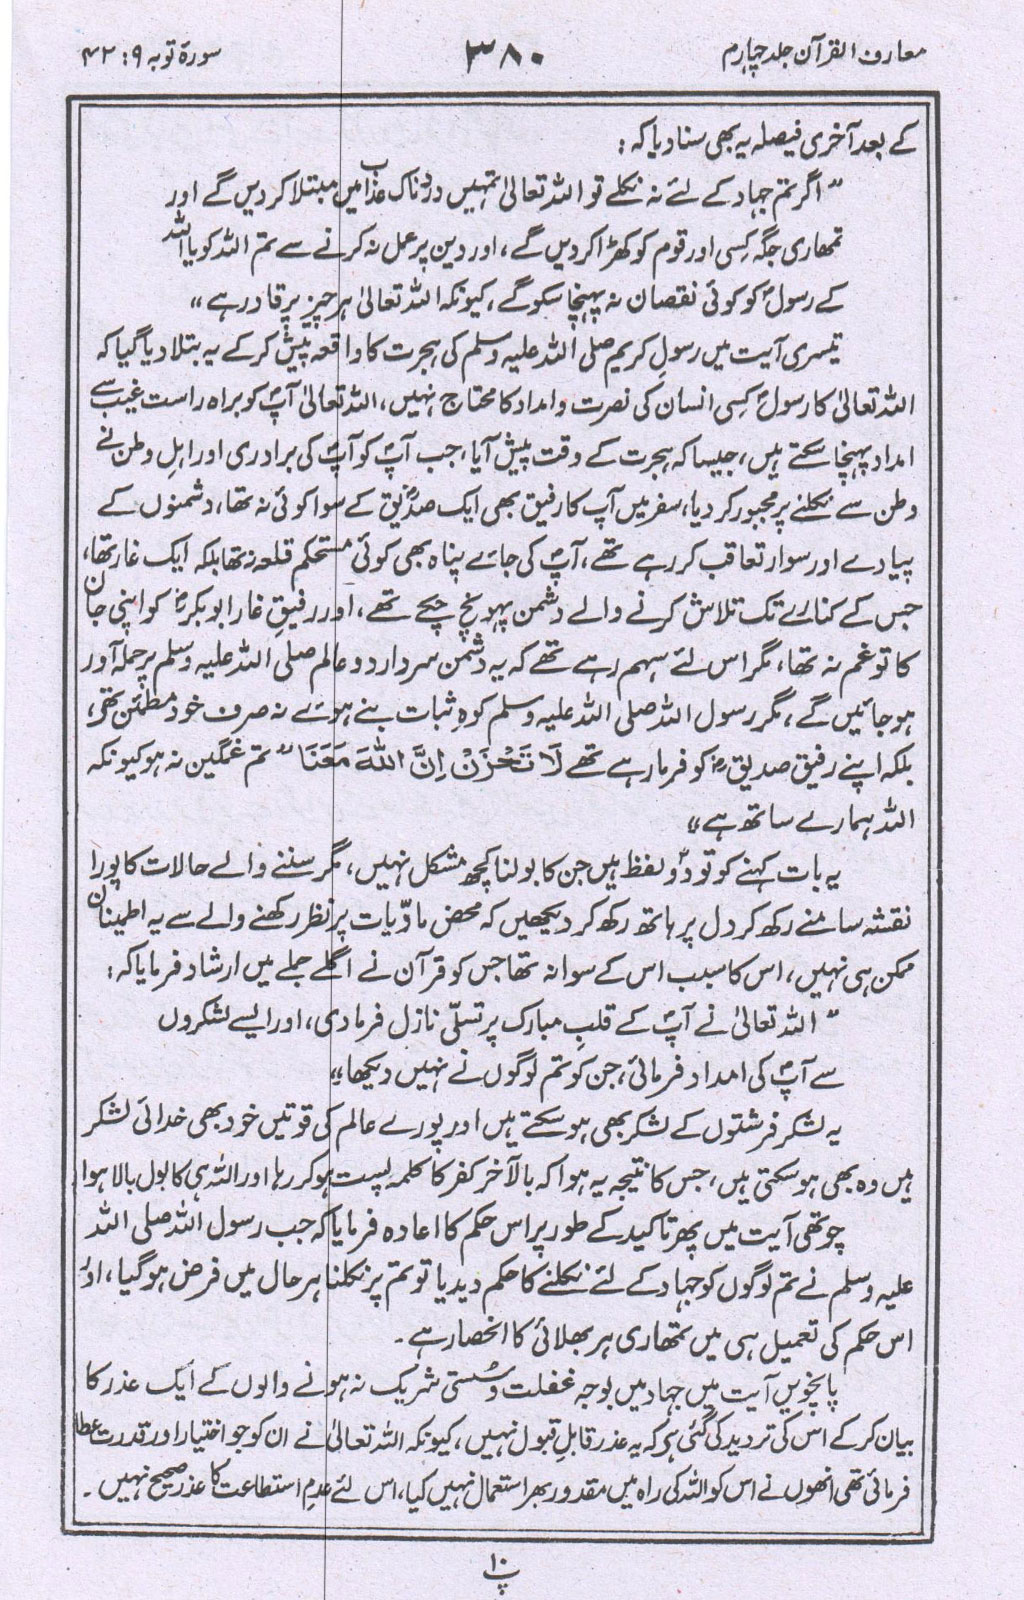 معارف القرآن جلد چہارم
۳۸۰
سورۃ توبہ ۹ : ۴۲
کے بعد آخری فیصلہ یہ بھی سنا دیا کہ :
" اگر تم جہاد کے لئے نہ نکلے تو اللہ تعالیٰ تمہیں دردناک عذاب میں مبتلا کر دیں گے اور
تمھاری جگہ کسی اور قوم کو کھڑا کر دیں گے ، اور دین پر عمل نہ کرنے سے تم اللہ کو یا اللہ
کے رسولؐ کو کوئی نقصان نہ پہنچا سکو گے ، کیونکہ اللہ تعالیٰ ہر چیز پر قادر ہے "
تیسری آیت میں رسولِ کریم صلی اللہ علیہ وسلم کی ہجرت کا واقعہ پیش کر کے یہ بتلا دیا گیا کہ
اللہ تعالیٰ کا رسولؐ کسی انسان کی نصرت و امداد کا محتاج نہیں ، اللہ تعالیٰ آپؐ کو براہ راست غیب سے
امداد پہنچا سکتے ہیں ، جیسا کہ ہجرت کے وقت پیش آیا ، جب آپؐ کو آپؐ کی برادری اور اہلِ وطن نے
وطن سے نکلنے پر مجبور کر دیا ، سفر میں آپ کا رفیق بھی ایک صدیقؓ کے سوا کوئی نہ تھا ، دشمنوں کے
پیادے اور سوار تعاقب کر رہے تھے ، آپؐ کی جائے پناہ بھی کوئی مستحکم قلعہ نہ تھا بلکہ ایک غار تھا ،
جس کے کنارے تک تلاش کرنے والے دشمن پہونچ چکے تھے ، اور رفیقِ غار ابوبکرؓ کو اپنی جان
کا تو غم نہ تھا ، مگر اس لئے سہم رہے تھے کہ یہ دشمن سردارِ دو عالم صلی اللہ علیہ وسلم پر حملہ آور
ہو جائیں گے ، مگر رسول اللہ صلی اللہ علیہ وسلم کوہِ ثبات بنے ہوئے نہ صرف خود مطمئن تھے ،
بلکہ اپنے رفیق صدیقؓ کو فرما رہے تھے لَا تَحْزَنْ اِنَّ اللہَ مَعَنَا " تم غمگین نہ ہو کیونکہ
اللہ ہمارے ساتھ ہے "
یہ بات کہنے کو تو دو لفظ ہیں جن کا بولنا کچھ مشکل نہیں ، مگر سننے والے حالات کا پورا
نقشہ سامنے رکھ کر دل پر ہاتھ رکھ کر دیکھیں کہ محض مادّیات پر نظر رکھنے والے سے یہ اطمینان
ممکن ہی نہیں ، اس کا سبب اس کے سوا نہ تھا جس کو قرآن نے اگلے جملے میں ارشاد فرمایا کہ :
" اللہ تعالیٰ نے آپؐ کے قلبِ مبارک پر تسلّی نازل فرما دی ، اور ایسے لشکروں
سے آپؐ کی امداد فرمائی ، جن کو تم لوگوں نے نہیں دیکھا "
یہ لشکر فرشتوں کے لشکر بھی ہو سکتے ہیں اور پورے عالم کی قوتیں خود بھی خدائی لشکر
ہیں وہ بھی ہو سکتی ہیں ، جس کا نتیجہ یہ ہوا کہ بالآخر کفر کا کلمہ پست ہو کر رہا اور اللہ ہی کا بول بالا ہوا
چوتھی آیت میں پھر تاکید کے طور پر اس حکم کا اعادہ فرمایا کہ جب رسول اللہ صلی اللہ
علیہ وسلم نے تم لوگوں کو جہاد کے لئے نکلنے کا حکم دیدیا تو تم پر نکلنا ہر حال میں فرض ہو گیا ، اور
اس حکم کی تعمیل ہی میں تمھاری ہر بھلائی کا انحصار ہے ۔
پانچویں آیت میں جہاد میں بوجہ غفلت و سُستی شریک نہ ہونے والوں کے ایک عذر کا
بیان کر کے اس کی تردید کی گئی ہی کہ یہ عذر قابلِ قبول نہیں ، کیونکہ اللہ تعالیٰ نے ان کو جو اختیار اور قدرت عطا
فرمائی تھی انھوں نے اس کو اللہ کی راہ میں مقدور بھر استعمال نہیں کیا ، اس لئے عدمِ استطاعت کا عذر صحیح نہیں ۔
پ ۱۰